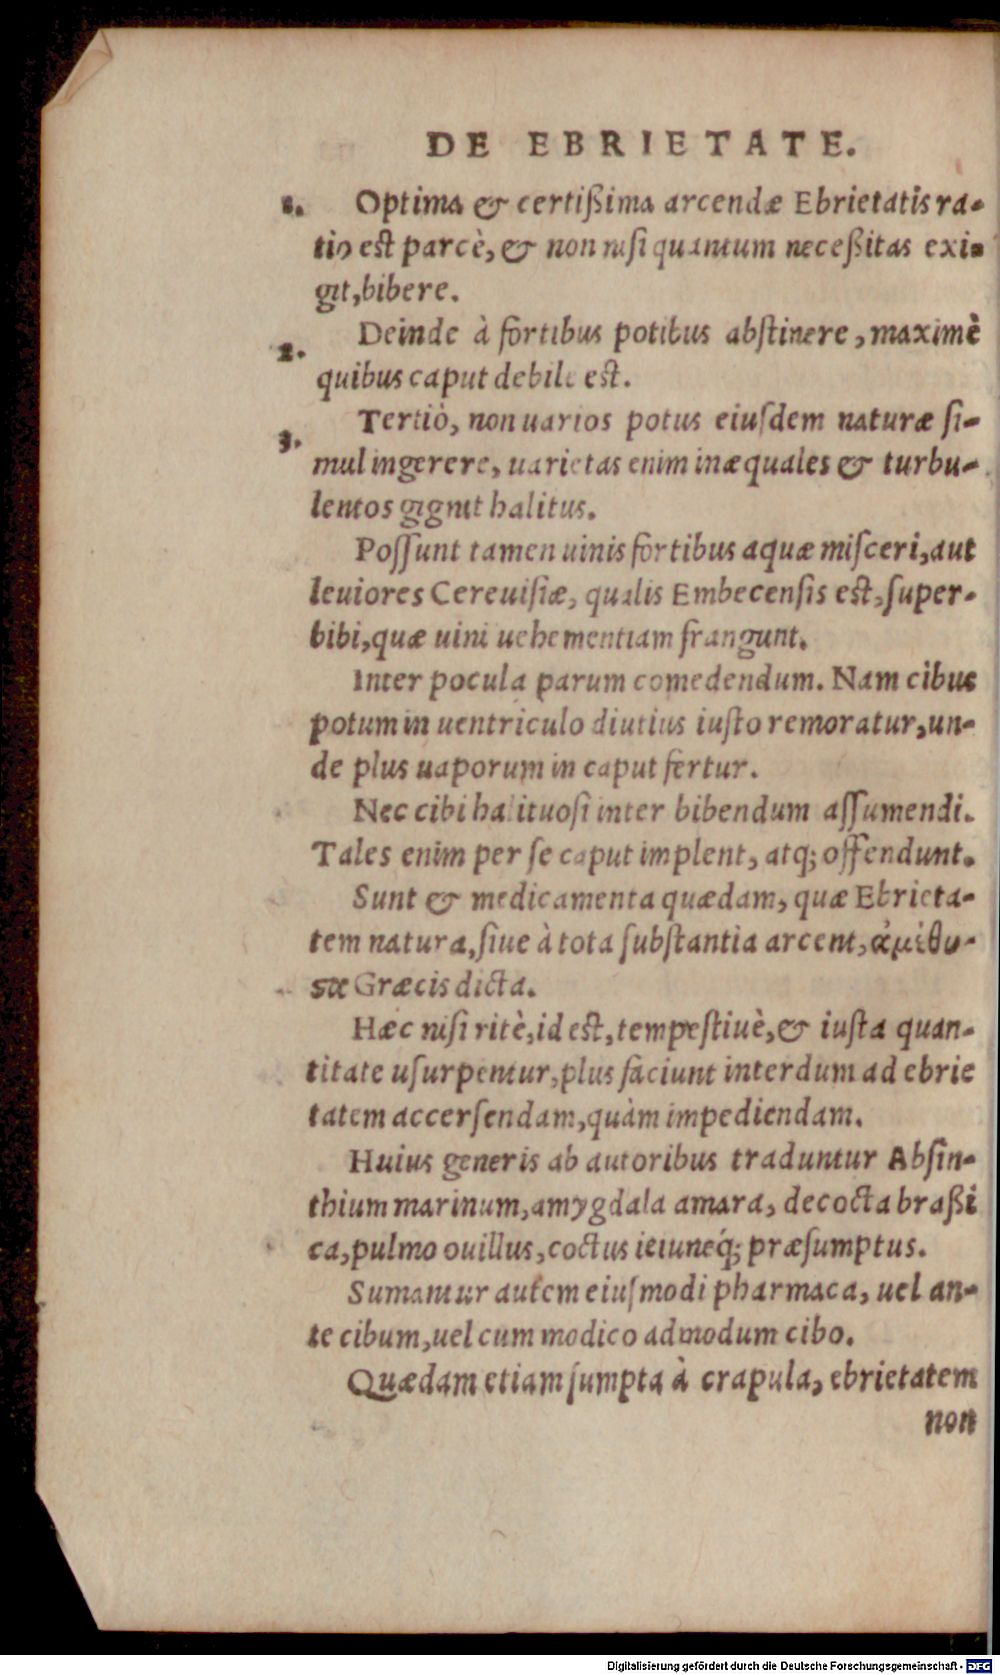 DE EBRIETATE.
1. Optima & certißima arcendæ Ebrietatis ra-
tio est parcè, & non nisi quantum neceßitas exi-
git, bibere.
2. Deinde à fortibus potibus abstinere, maximè
quibus caput debile est.
3. Tertiò, non uarios potus eiusdem naturæ si-
mul ingerere, uarietas enim inæquales & turbu-
lentos gignit halitus.
Possunt tamen uinis fortibus aquæ misceri, aut
leuiores Cereuisiæ, qualis Embecensis est, super-
bibi, quæ uini uehementiam frangunt.
Inter pocula parum comedendum. Nam cibus
potum in uentriculo diutius iusto remoratur, un-
de plus uaporum in caput fertur.
Nec cibi halituosi inter bibendum assumendi.
Tales enim per se caput implent, atq; offendunt.
Sunt & medicamenta quædam, quæ Ebrieta-
tem natura, siue à tota substantia arcent, ἀμέθυ-
σα Græcis dicta.
Hæc nisi ritè, id est, tempestiuè, & iusta quan-
titate usurpentur, plus faciunt interdum ad ebrie
tatem accersendam, quàm impediendam.
Huius generis ab autoribus traduntur Absin-
thium marinum, amygdala amara, decocta braßi
ca, pulmo ouillus, coctus ieiuneq́; præsumptus.
Sumantur autem eiusmodi pharmaca, uel an-
te cibum, uel cum modico admodum cibo.
Quædam etiam sumpta à crapula, ebrietatem
non
Digitalisierung gefördert durch die Deutsche Forschungsgemeinschaft - DFG